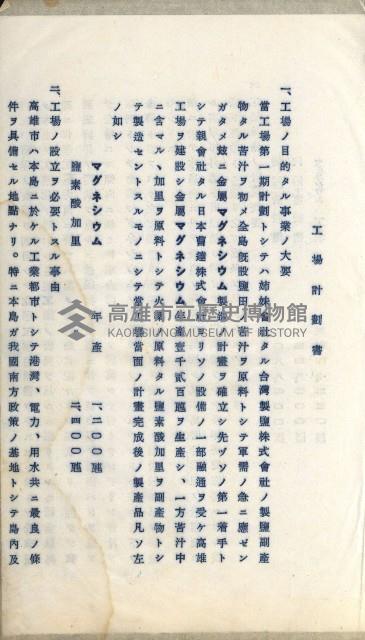 工場計劃書
一、工場ノ目的タル事業ノ大要
當工場第一期計劃トシテハ姉妹會社タル台灣製鹽株式會社ノ製鹽副產
物タル苦汁ヲ初メ全島既設鹽田ノ苦汁ヲ原料トシテ軍需ノ急ニ應ゼン
ガタメ茲ニ金屬マグネシウム製造ノ計畫ヲ確立シ先ヅソノ第一着手ト
シテ親會社タル日本曹達株式會社ヨリソノ設備ノ一部融通ヲ受ケ高雄
工場ヲ建設シ金屬マグネシウム年產壹千貳百瓲ヲ生產シ、一方苦汁中
ニ含マルヽ加里ヲ原料トシテ火藥原料タル鹽素酸加里ヲ副產物トシ
テ製造セントスルモノニシテ當工場當面ノ計畫完成後ノ製產品凡ソ左
ノ如シ
年產
マグネシウム 一、二〇〇瓲
鹽素酸加里 二、四〇〇瓲
二、工場ノ設立ヲ必要トスル事由
高雄市ハ本島ニ於ケル工業都市トシテ港灣、電力、用水共ニ最良ノ條
件ヲ具備セル地點ナリ。特ニ本島ガ我國南方政策ノ基地トシテ島內及
高雄市立歷史博物館
KAOHSIUNG MUSEUM OF HISTORY